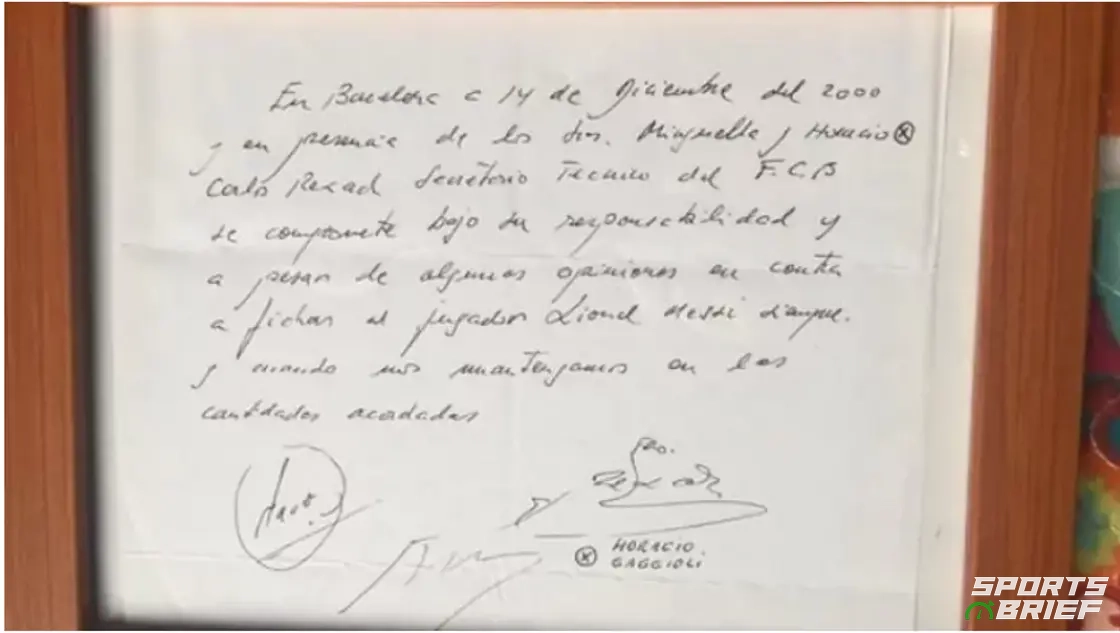 En Barcelona a 14 de Diciembre del 2000
y en presencia de los Srs. Minguella y Horacio
Carlos Rexach Secretario Tecnico del F.C.B
se compromete bajo su responsabilidad y
a pesar de algunas opiniones en contra
a fichar al jugador Lionel Messi
y cuando nos mantengamos en las
cantidades acordadas
HORACIO
GAGGIOLI
SPORTS
BRIEF